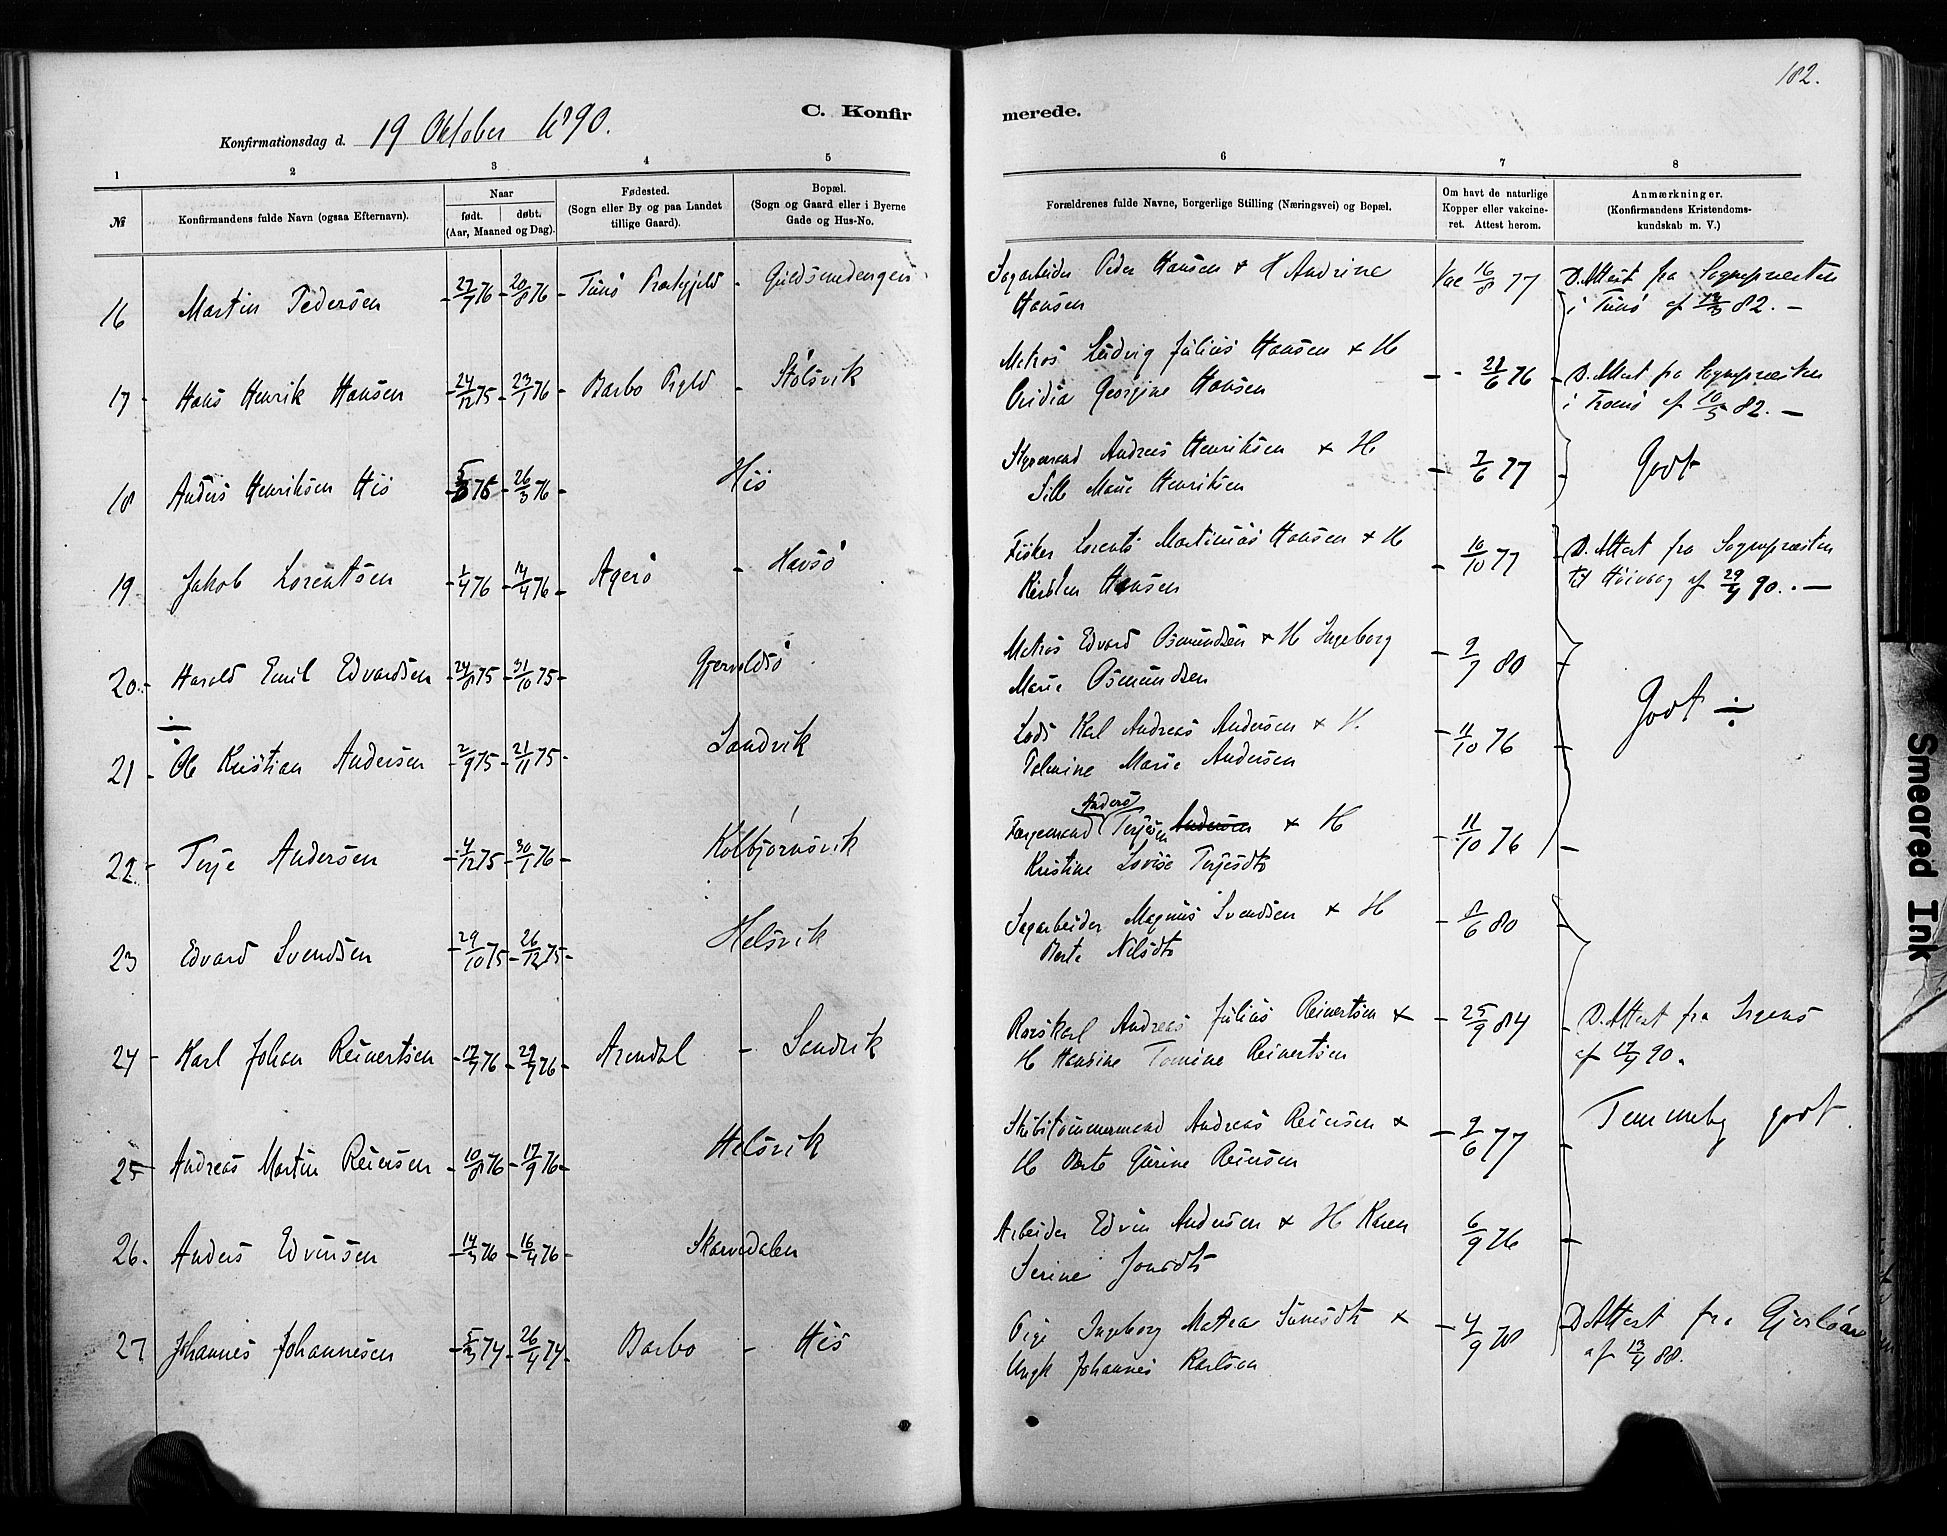 182.
C. Konfirmerede.
Konfirmationsdag d. 19 Oktober 1890.
1 2 3 4 5 6 7 8
№ Konfirmandens fulde Navn (ogsaa Efternavn). Naar født. døbt. (Aar, Maaned og Dag). Fødested. (Sogn eller By og paa Landet tillige Gaard). Bopæl. (Sogn og Gaard eller i Byerne Gade og Hus-No.
Forældrenes fulde Navne, borgerlige Stilling (Næringsvei) og Bopæl. Om havt de naturlige Kopper eller vakcineret. Attest herom. Anmærkninger. (Konfirmandens Kristendomskundskab m. V.)
16 Martin Pedersen 27/7 76 - 20/8 76 - Guldsmedengen Sagarbeider Peder Hansen & H Andrine Vac 16/8 77 D. Attest fra Sognepresten
Hansen i af 13/3 82. -
17 - Hans Henrik Hansen 24/12 75 - 23/1 76 - Barbo Prgld - Stølsvik Matros Ludvig Julius Hansen & H - - 21/6 76 D. Attest fra Sognepresten
Georgine Hansen i Tromø af 10/5 82. -
18 Anders Henriksen His 26/3 76 - His Andreas Henriksen & H - 7/6 77 Godt
Sille Marie Henriksen
19 Jakob Lorentsen 1/4 76 - 14/4 76 - Agerø - Havsø Fisker Lorents Martinius Hansen & H - 16/10 77 D. Attest fra Sognepresten
Hansen til Høivaag af 29/9 90. -
20 - Harald Emil Edvardsen 24/8 75 - 31/10 75 - Gjervoldsø Matros Edvard Osmundsen & H Ingeborg - 9/7 80
Marie Osmundsen Godt ÷
÷
21 - Ole Kristian Andersen 2/9 75 - 21/11 75 - Sandvik Lods Karl Andreas Andersen & H. - 11/10 76
Marie Andersen
22 - Terje Andersen 4/12 75 - 30/1 76 - Kolbjørnsvik Færgemand Anders Terjesen Andersen & H - 11/10 76
Kristine Lovise Terjesdt
23 Edvard Svendsen 29/10 75 - 26/12 75 - Helsvik Sagarbeider Magnus Svendsen & H - 8/6 80
Berte Nilsdt
24 - Karl Johan Reinertsen 17/7 76 - 29/9 76 - Arendal - Sandvik Andreas Julius Reinertsen & - 25/9 84 D. Attest fra
H Hansine Tomine Reinertsen af 17/9 90.
25 Andreas Martin Reiersen 10/8 76 - 17/9 76 - Helsvik Skibstømmermand Andreas Reiersen & - 2/6 77 Temmelig godt
H Berte Gurine Reiersen
26. Anders Edvinsen 14/3 76 - 16/4 76 - Skarvedalen Arbeider Edvin Andersen & H Karen 6/9 76
Serine Jonsdt
27 Johannes Johannesen 5/3 74 - 26/4 74 - Barbo - His Pige Ingeborg Mathea & - 4/9 78 D. Attest fra
Ungk Johannes Karlson af 13/4 88.
Smeared Ink